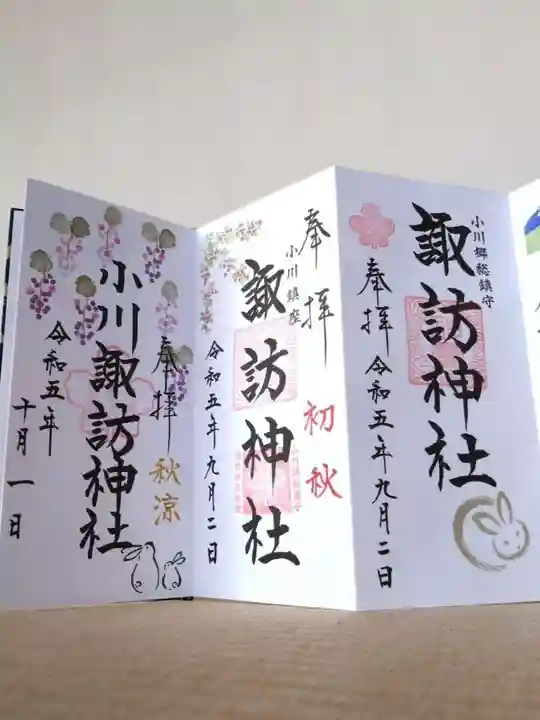 小川郷総鎮守
諏訪神社
奉拝
令和五年九月二日
奉拝
初秋
小川鎮座
諏訪神社
令和五年九月二日
奉拝
秋涼
小川諏訪神社
令和五年
十月一日